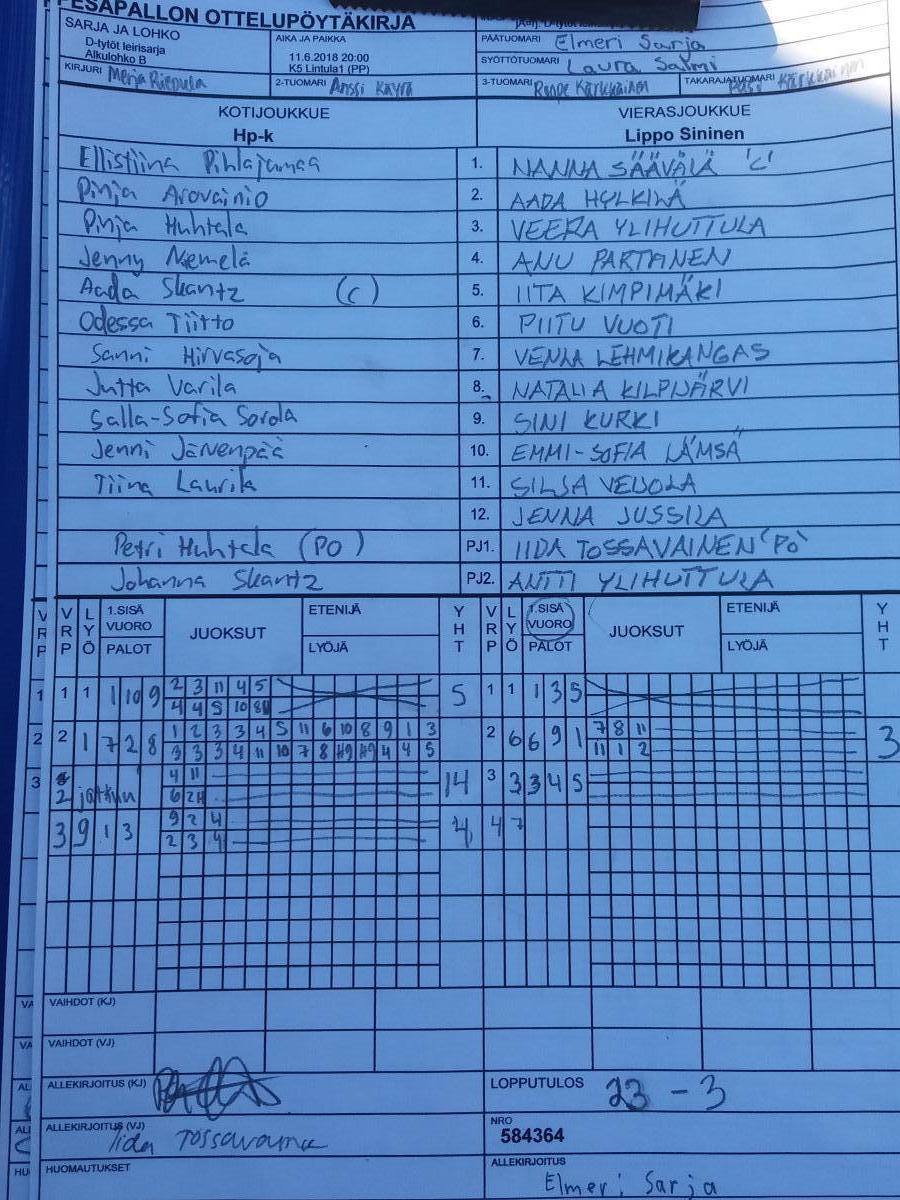 PESÄPALLON OTTELUPÖYTÄKIRJA
SARJA JA LOHKO
D-tytöt leirisarja
Alkulohko B
AIKA JA PAIKKA
11.6.2018 20:00
K5 Lintula1 (PP)
PÄÄTUOMARI Elmeri Sarja
SYÖTTÖTUOMARI Laura Salmi
KIRJURI Merja Riepula
2-TUOMARI Anssi Käyrä
3-TUOMARI Roope Kärkkäinen
TAKARAJATUOMARI Kärkkäinen
KOTIJOUKKUE
Hp-k
VIERASJOUKKUE
Lippo Sininen
Ellistiina Pihlajamaa 1. NANNA SÄÄVÄLÄ 'C'
Pinja Arovainio 2. AADA HYLKILÄ
Pinja Huhtala 3. VEERA YLIHUTTULA
Jenny Niemelä 4. ANU PARTANEN
Aada Skantz (C) 5. IITA KIMPIMÄKI
Odessa Tiitto 6. PIITU VUOTI
Sanni Hirvasoja 7. VENLA LEHMIKANGAS
Jutta Varila 8. NATALIA KILPIJÄRVI
Salla-Sofia Sorola 9. SINI KURKI
Jenni Järvenpää 10. EMMI-SOFIA LÄMSÄ
Tiina Laurila 11. SILJA VEIJOLA
12. JENNA JUSSILA
Petri Huhtala (PO) PJ1. IIDA TOSSAVAINEN 'PO'
Johanna Skantz PJ2. ANTTI YLIHUTTULA
VRP VRP LYÖ 1.SISÄ VUORO PALOT JUOKSUT ETENIJÄ LYÖJÄ YHT VRP LYÖ 1.SISÄ VUORO PALOT JUOKSUT ETENIJÄ LYÖJÄ YHT
1 1 1 1 10 9 2 3 11 4 5 5 1 1 1 3 5
4 4 5 10 8
2 2 1 7 2 8 1 2 3 3 4 5 11 6 10 8 9 1 3 2 6 6 9 1 7 8 11 3
3 3 3 4 11 10 7 8 #9 #9 4 4 5 11 1 2
3 2 jatkuu 4 11 14 3 3 3 4 5
6 2
3 9 1 3 9 2 4 4 4 7
2 3 4
VAIHDOT (KJ)
VAIHDOT (VJ)
ALLEKIRJOITUS (KJ)
LOPPUTULOS 23 - 3
ALLEKIRJOITUS (VJ) Iida Tossavainen
NRO
584364
HUOMAUTUKSET
ALLEKIRJOITUS
Elmeri Sarja